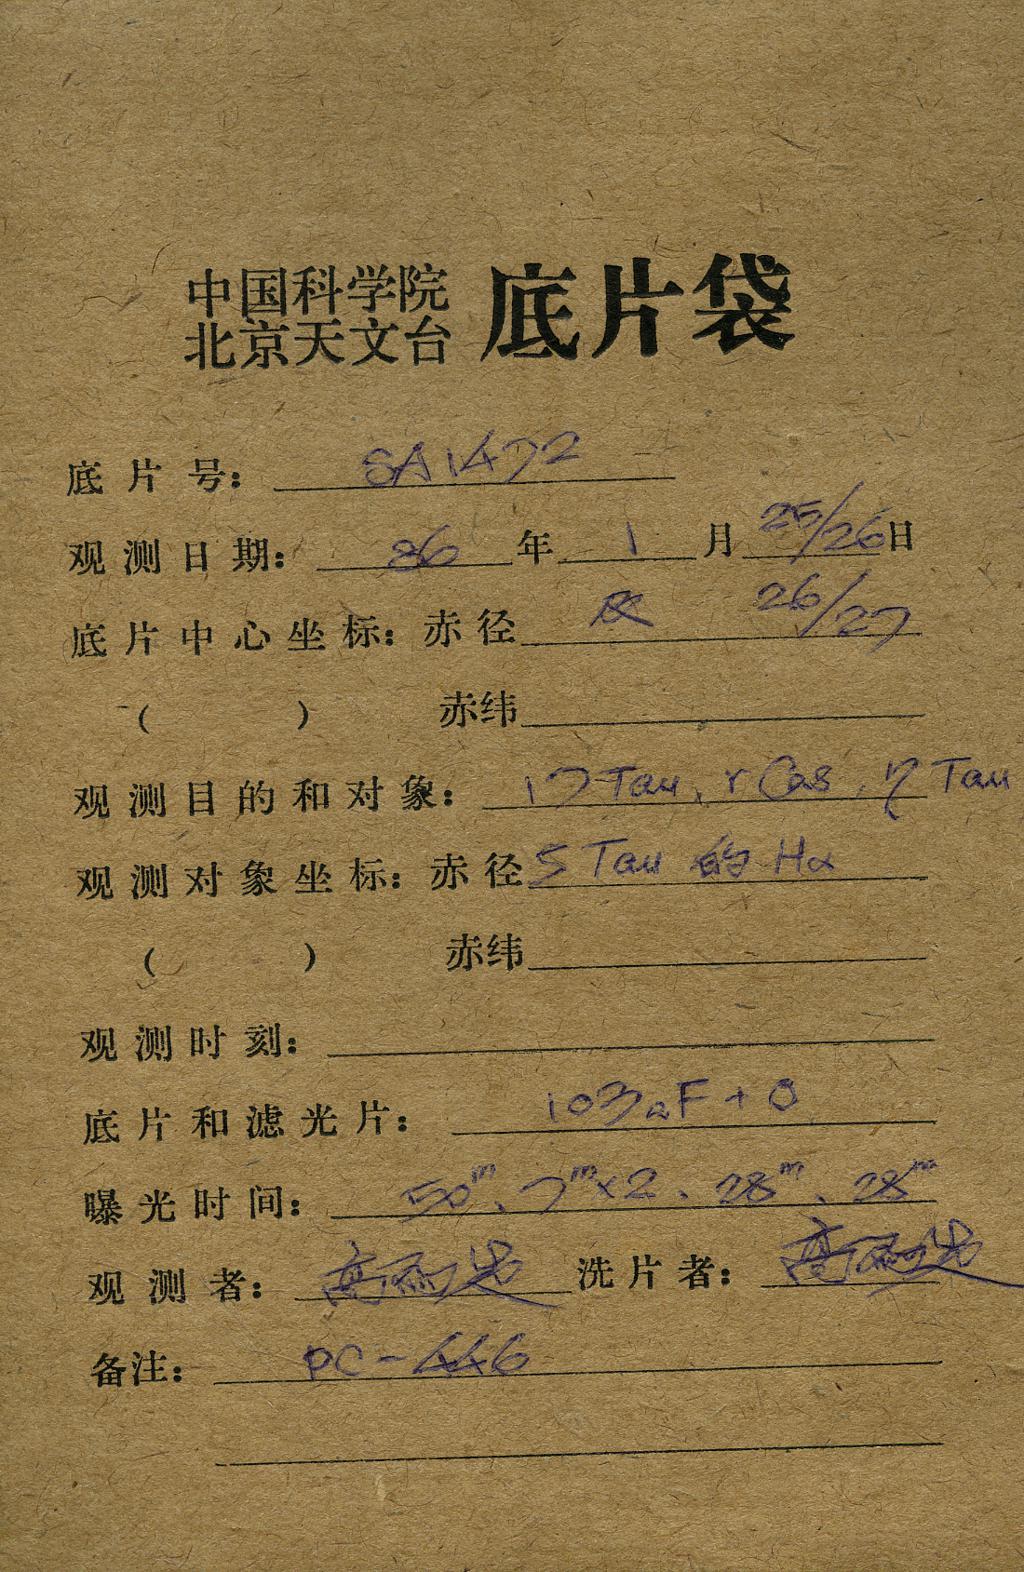 中国科学院
北京天文台 底片袋
底片号: SA1472
观测日期: 86年1月25/26日
底片中心坐标: 赤径 及 26/27
( ) 赤纬
观测目的和对象: 17 Tau, r Cas, η Tau
观测对象坐标: 赤径 5 Tau 的 Hα
( ) 赤纬
观测时刻:
底片和滤光片: 103aF+0
曝光时间: 50ᵐ、7ᵐ×2、28ᵐ、28ᵐ
观测者: 洗片者:
备注: PC-446